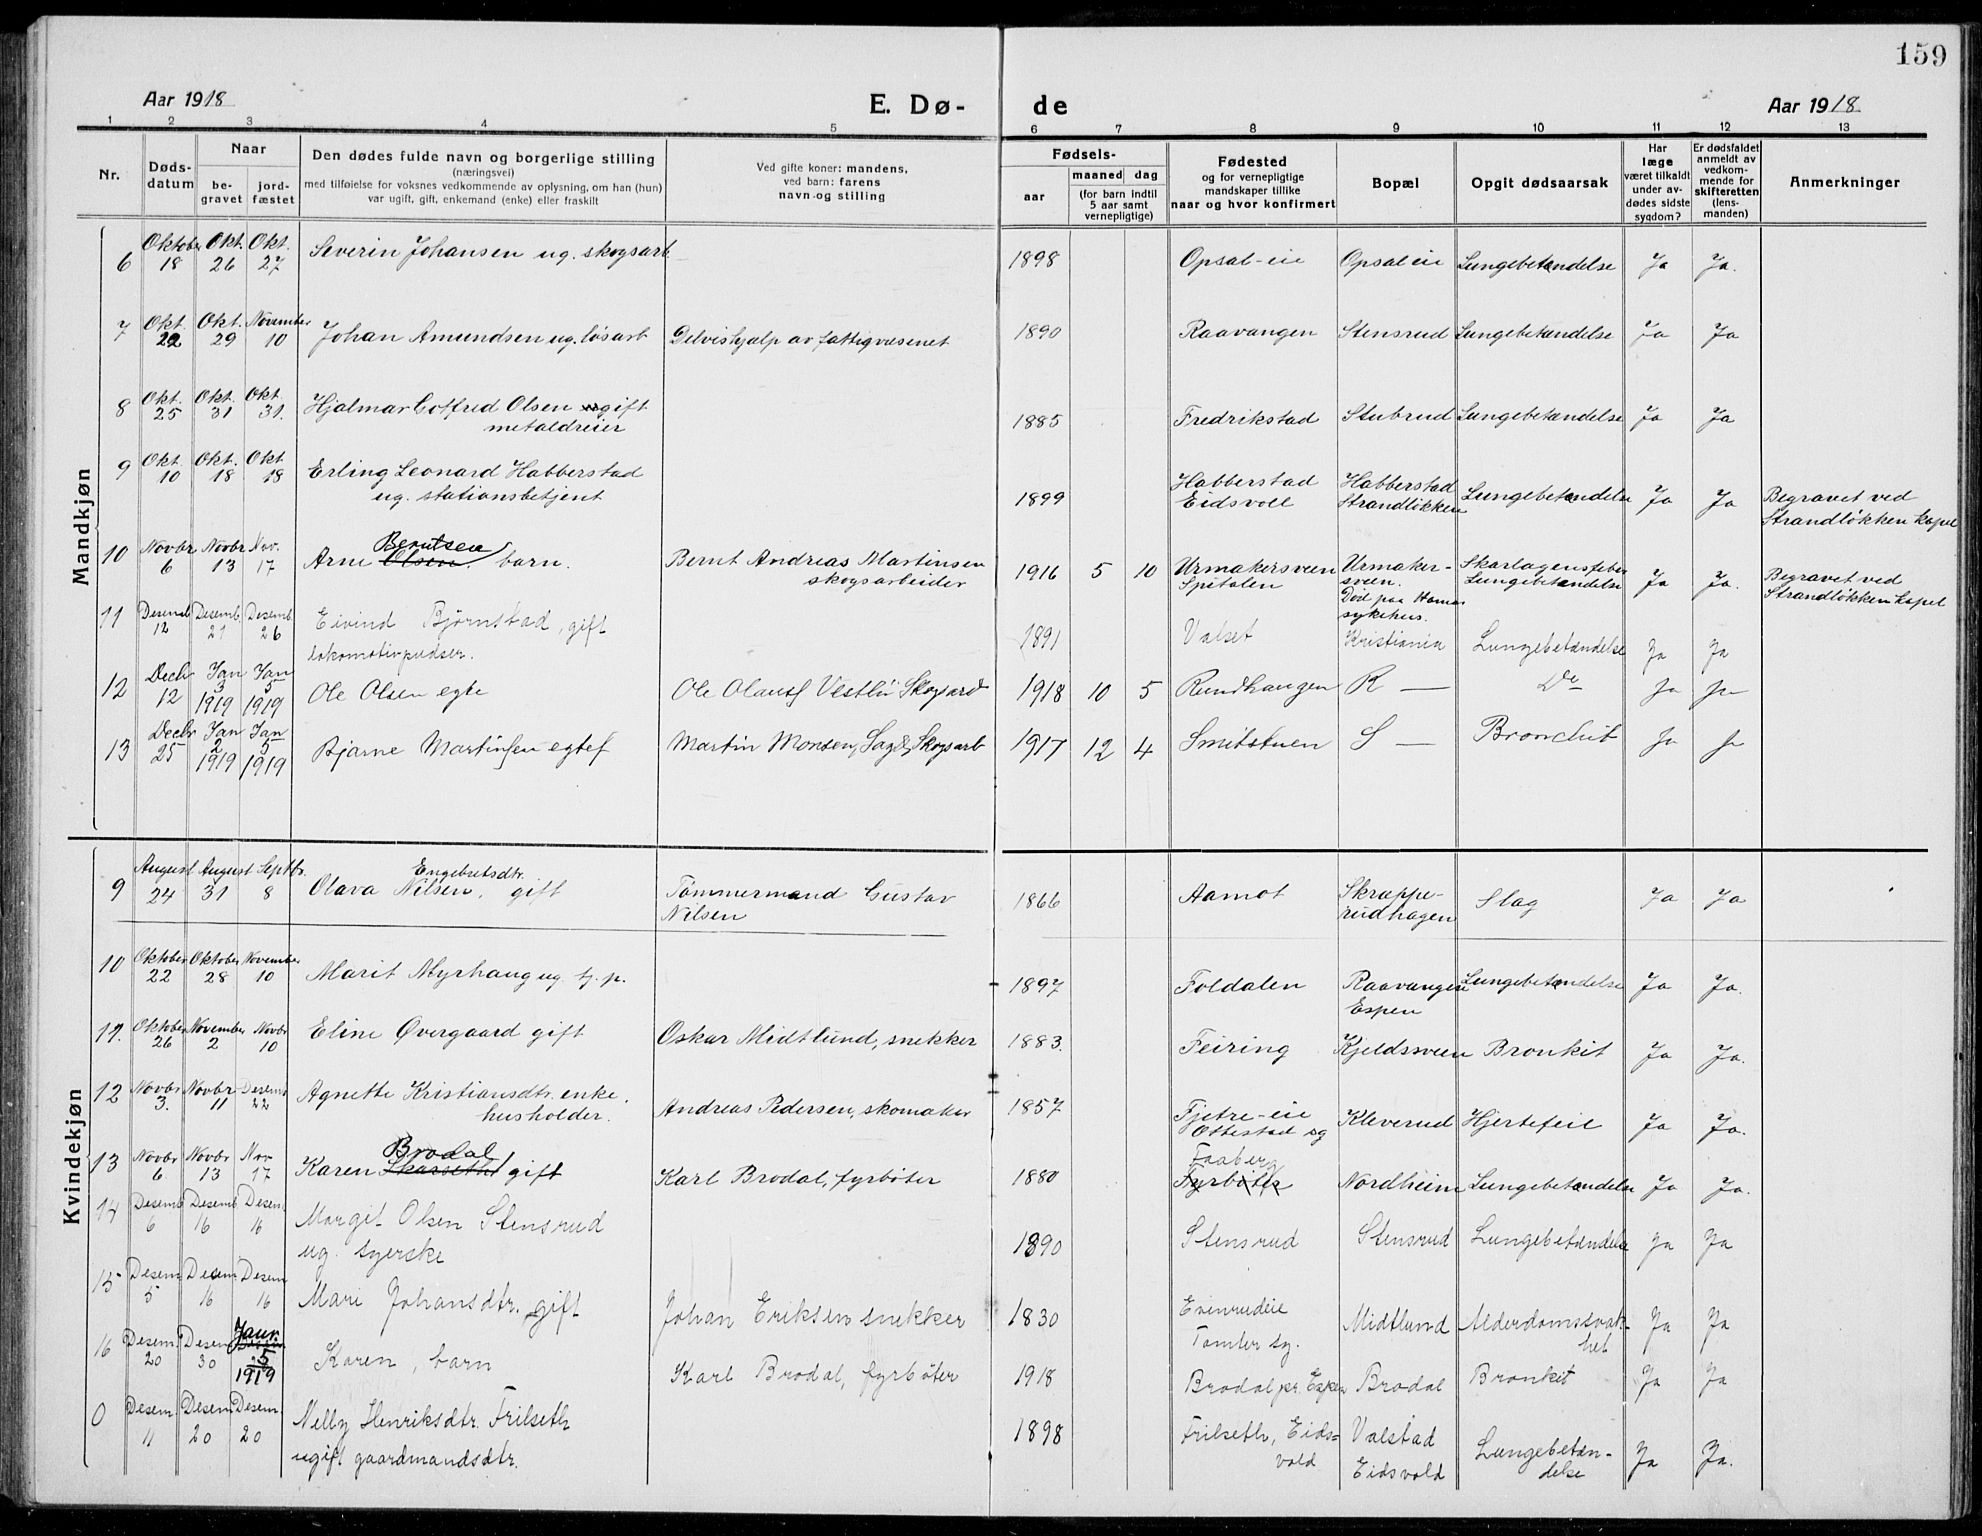 159
Aar 1918
E. Dø-
de
Aar 1918
1 2 3 4 5 6 7 8 9 10 11 12 13
Nr.
Døds-
datum
Naar
be-
gravet
jord-
fæstet
Den dødes fulde navn og borgerlige stilling
(næringsvei)
med tilføielse for voksnes vedkommende av oplysning, om han (hun)
var ugift, gift, enkemand (enke) eller fraskilt
Ved gifte koner: mandens,
ved barn: farens
navn og stilling
Fødsels-
aar
maaned dag
(for barn indtil
5 aar samt
vernepligtige)
Fødested
og for vernepligtige
mandskaper tillike
naar og hvor konfirmert
Bopæl
Opgit dødsaarsak
Har
læge
været tilkaldt
under av-
dødes sidste
sygdom?
Er dødsfaldet
anmeldt av
vedkom-
mende for
skifteretten
(lens-
manden)
Anmerkninger
Mandkjøn
Oktober Okt. Okt.
6 18 26 27 Severin Johansen ug. skogsarb. 1898 Opsal-eie Opsal eie Lungebetændelse Ja Ja.
Okt. Okt. November
7 22 29 10 Johan Amundsen ug. løsarb Delvishjælp av fattigvæsenet 1890 Raavangen Stensrud Lungebetændelse Ja Ja
Okt. Okt. Okt.
8 25 31 31. Hjalmar Gotfred Olsen gift 1885 Fredrikstad Stubrud Lungebetændelse Ja Ja
metaldreier
Okt. Okt. Okt
9 10 18 18 Erling Leonard Habberstad
ug. stationsbetjent 1899 Habberstad
Eidsvoll Habberstad
Strandløkken Lungebetændelse Ja Ja Begravet ved
Strandløkken kapel
Novbr Novbr Nov.
Berntsen
10 6 13 17 Arne Olsen, barn. Bernt Andreas Martinsen
skogsarbeider 1916 5 10 Urmakersveen
Spitalen Urmaker-
sveen.
Død paa Hamar
sykehus. Skarlagensfeber
Lungebetændelse Ja Ja. Begravet ved
Strandløkken kapel
Desemb Desemb Desemb
11 12 21 26 Eivind Bjørnstad, gift
lokomotivpudser. 1891 Valset Kristiania Lungebetændelse Ja Ja
Decbr Jan Jan
12 12 3 5
1919 1919 Ole Olsen egte Ole Olausf Vestlii Skogsard 1918 10 5 Rundhaugen R — Do Ja Ja
Decbr Jan Jan
13 25 2 5
1919 1919 Bjarne Martinsen egtef Martin Monsen, Sag&Skogsarb 1917 12 4 Smitstuen S — Bronchit Ja Ja
Kvindekjøn
August August Septbr.
Engebretsdtr.
9 24 31 8 Olava Nilsen, gift Tømmermand Gustav
Nilsen 1866 Aamot Skrappe-
rudhagen Slag Ja Ja
Oktober Oktober November
10 22 28 10 Marit Myrhaug ug. tj. p. 1897 Foldalen Raavangen
Espen Lungebetændelse Ja Ja.
Oktober November Novbr
26 2 10 Eline Øvergaard gift Oskar Midtlund, snekker 1883. Feiring Kjeldsveen Bronkit Ja Ja.
Novbr Novbr Desemb
12 3. 11 22 Agnette Kristiansdtr. enke,
husholder. Andreas Pedersen, skomaker 1857 Fjetre-eie
Ottestad sg Kleverud Hjertefeil Ja Ja.
Novbr Novbr Nov
Brodal
13 6 13 17 Karen Skarseth gift Karl Brodal, fyrbøter 1880 Faaberg
Fyrbøter Nordheim Lungebetændelse Ja Ja.
Desemb Desemb Desem
14 6 16 16 Margit Olsen Stensrud
ug. syerske 1890 Stensrud Stensrud Lungebetændelse Ja Ja
Desem. Desem Desem
15 5 16 16 Mari Johansdtr. gift Johan Eriksen snekker 1830 Evenrudeie
Tomter sg. Midtlund Alderdomssvak-
het Ja Ja
Desem. Desem Janr.
16 20 30 5
1919 Karen, barn Karl Brodal, fyrbøter 1918 Brodal pr. Espen Brodal Bronkit Ja Ja
Desem. Desem. Desem.
0 11 20 20 Nelly Henriksdtr. Frilseth
ugift gaardmandsdtr. 1898 Frilseth, Eids-
vold Valstad
Eidsvold Lungebetæn-
delse Ja Ja.